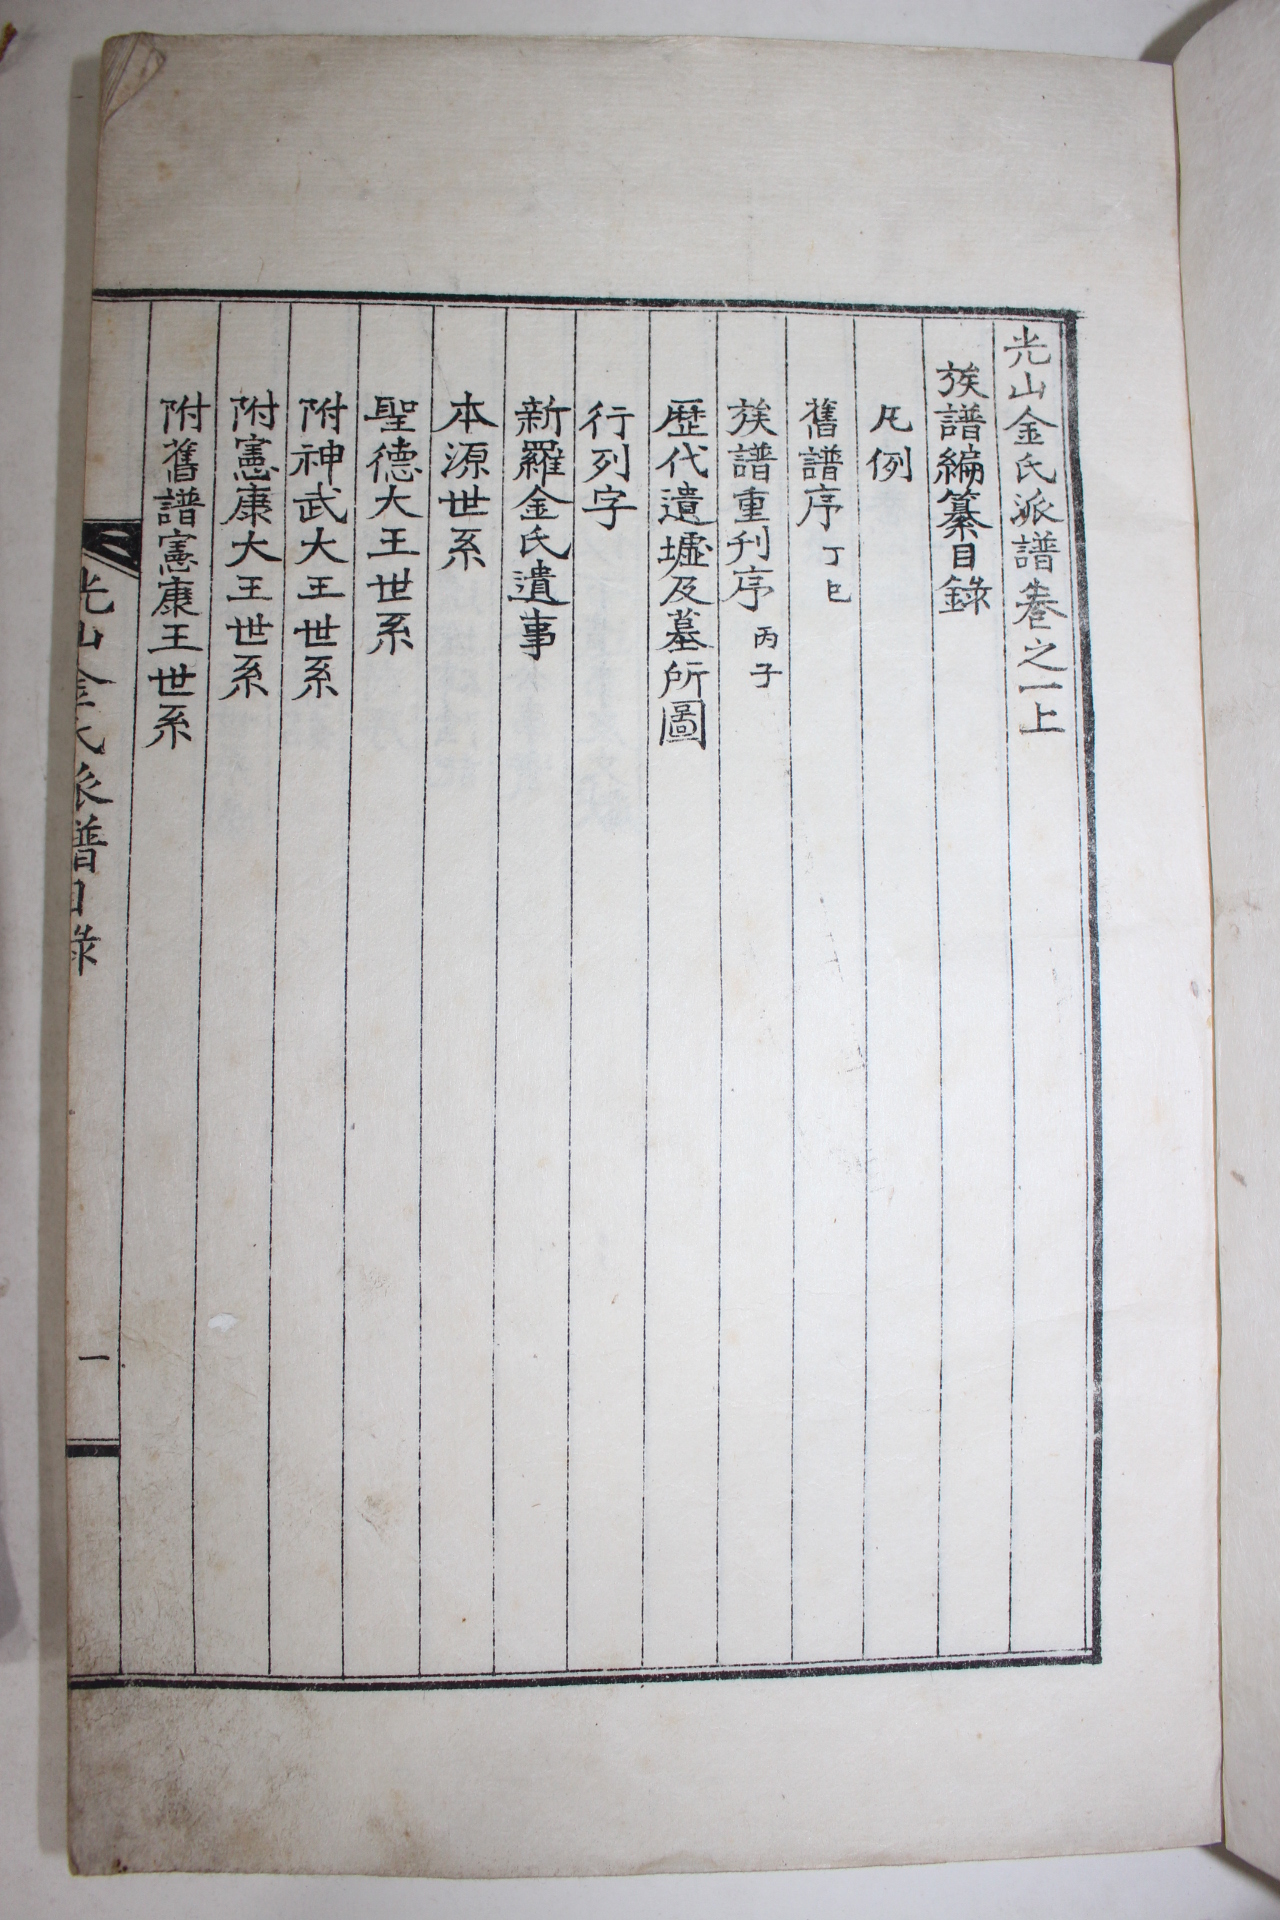 光山金氏派譜卷之一上
族譜編纂目錄
凡例
舊譜序 丁巳
族譜重刋序 丙子
歷代遺墟及墓所圖
行列字
新羅金氏遺事
本源世系
聖德大王世系
附神武大王世系
附憲康大王世系
附舊譜憲康王世系
光山金氏派譜目錄
一